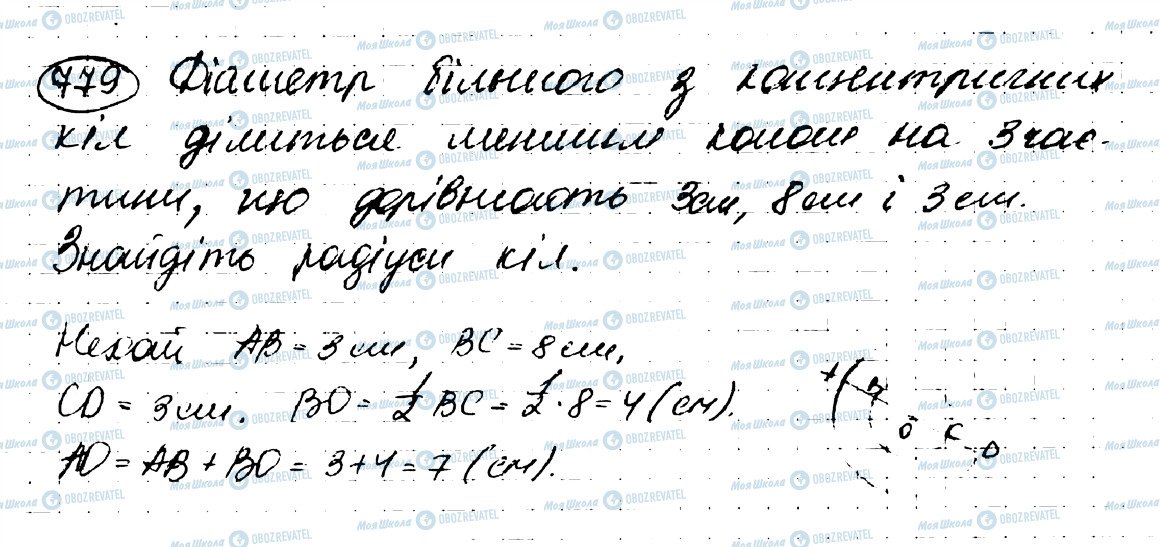 779 Діаметр більшого з концентричних
кіл ділиться меншим колом на 3 час-
тини, що дорівнюють 3см, 8 см і 3 см.
Знайдіть радіуси кіл.
Нехай AB = 3 см, BC = 8 см,
CD = 3 см. BO = 1/2 BC = 1/2 · 8 = 4 (см).
AO = AB + BO = 3 + 4 = 7 (см).
O
K
D
Моя Школа OBOZREVATEL